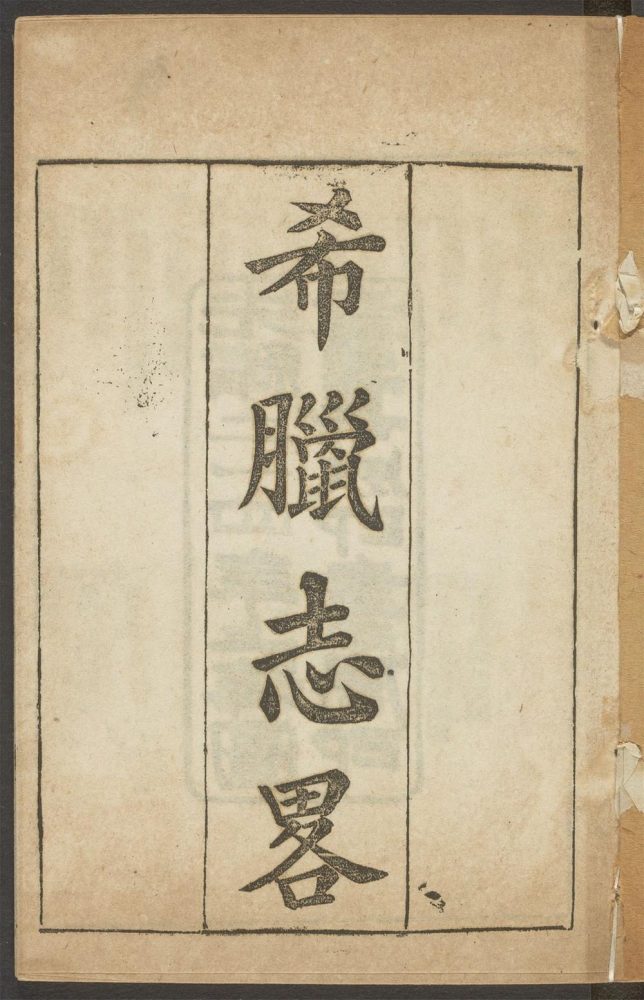 希臘志畧